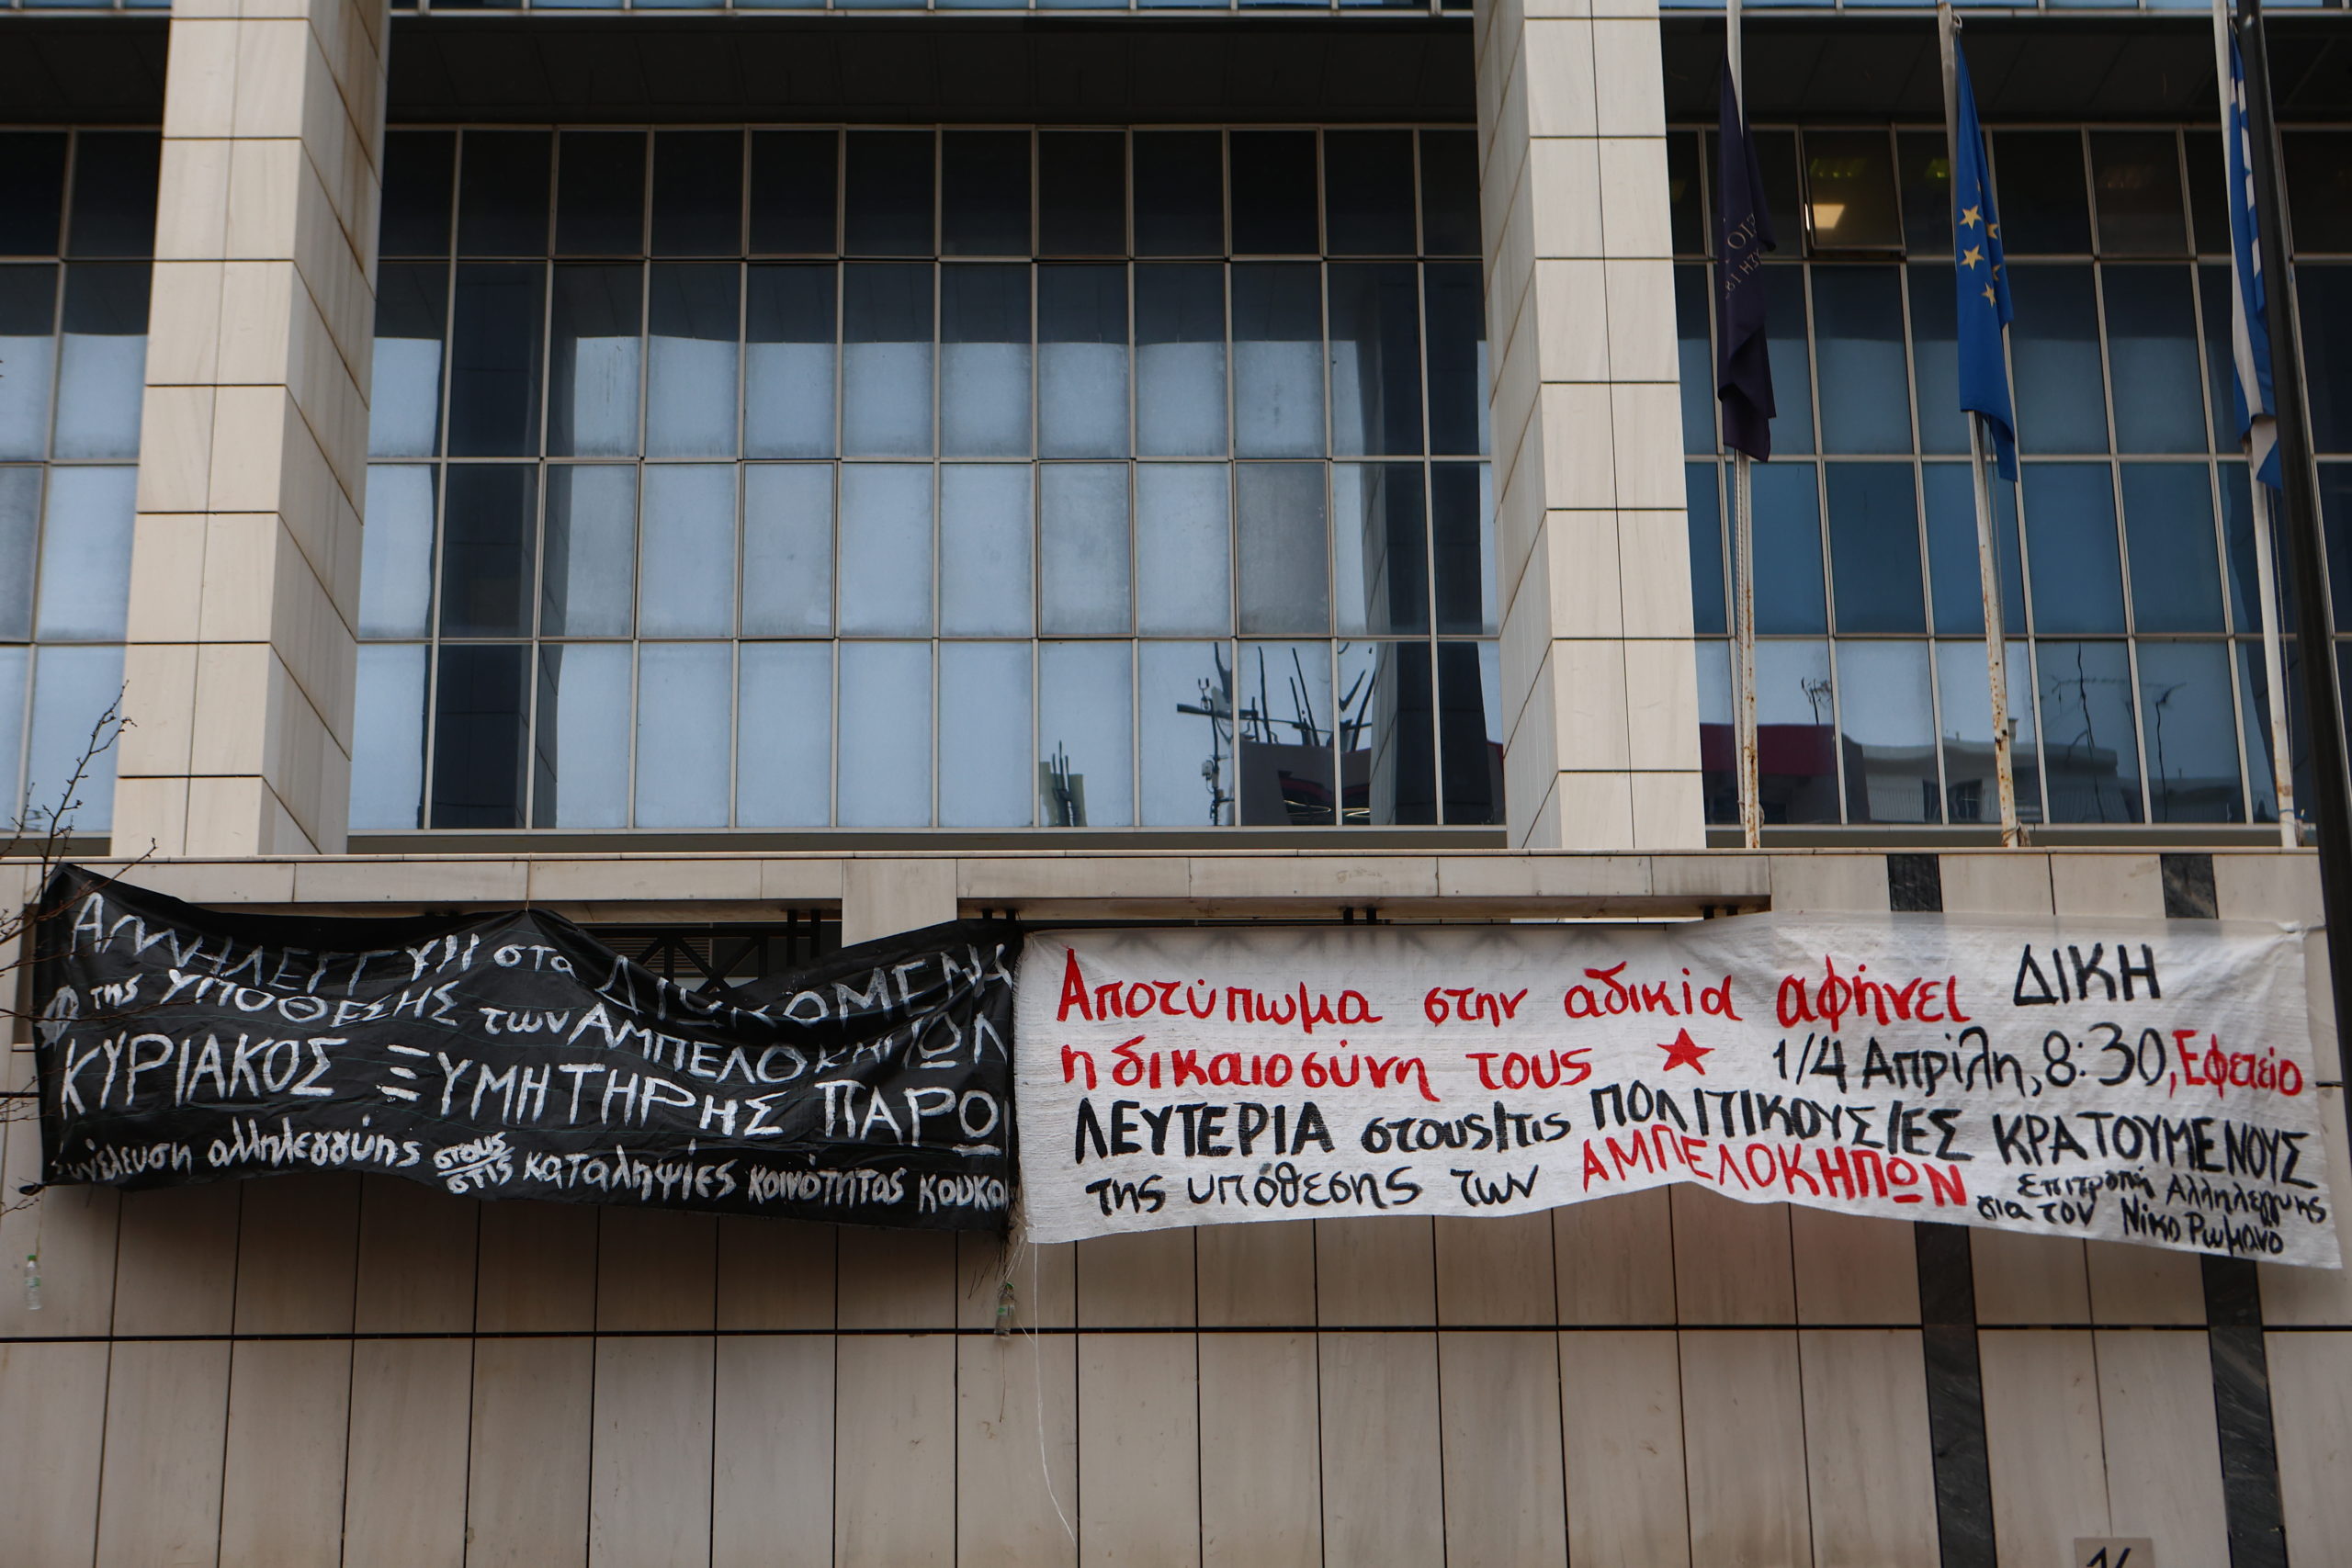 ΑΛΛΗΛΕΓΓΥΗ στα ΔΙΩΚΟΜΕΝΑ
της ΥΠΟΘΕΣΗΣ των ΑΜΠΕΛΟΚΗΠΩΝ
ΚΥΡΙΑΚΟΣ ΞΥΜΗΤΗΡΗΣ ΠΑΡΩ
Συνέλευση αλληλεγγύης στους/στις καταλήψίες κοινότητας κουκα
Αποτύπωμα στην αδικία αφήνει
η δικαιοσύνη τους ★
ΔΙΚΗ
1/4 Απρίλη, 8:30, Εφετείο
ΛΕΥΤΕΡΙΑ στους/τις ΠΟΛΙΤΙΚΟΥΣ/ΕΣ ΚΡΑΤΟΥΜΕΝΟΥΣ
της υπόθεσης των ΑΜΠΕΛΟΚΗΠΩΝ
Επιτροπή Αλληλεγγυης
για τον Νίκο Ρωμανο